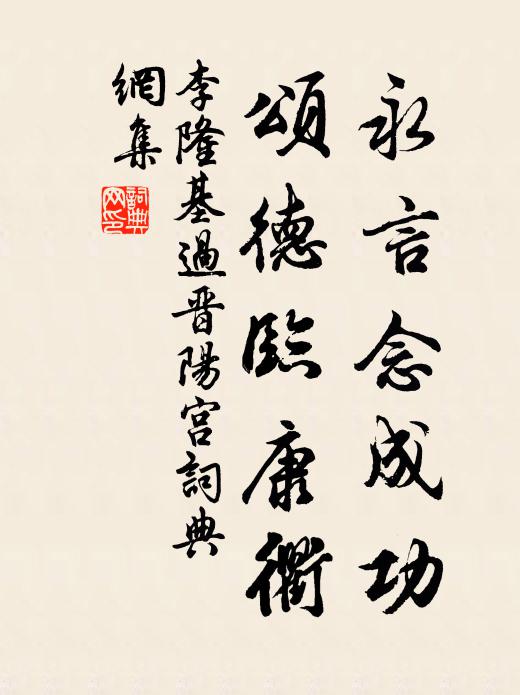 永言念成功
頌德臨康衢
李隆基過晋陽宮詞典
網集
詞典
网印